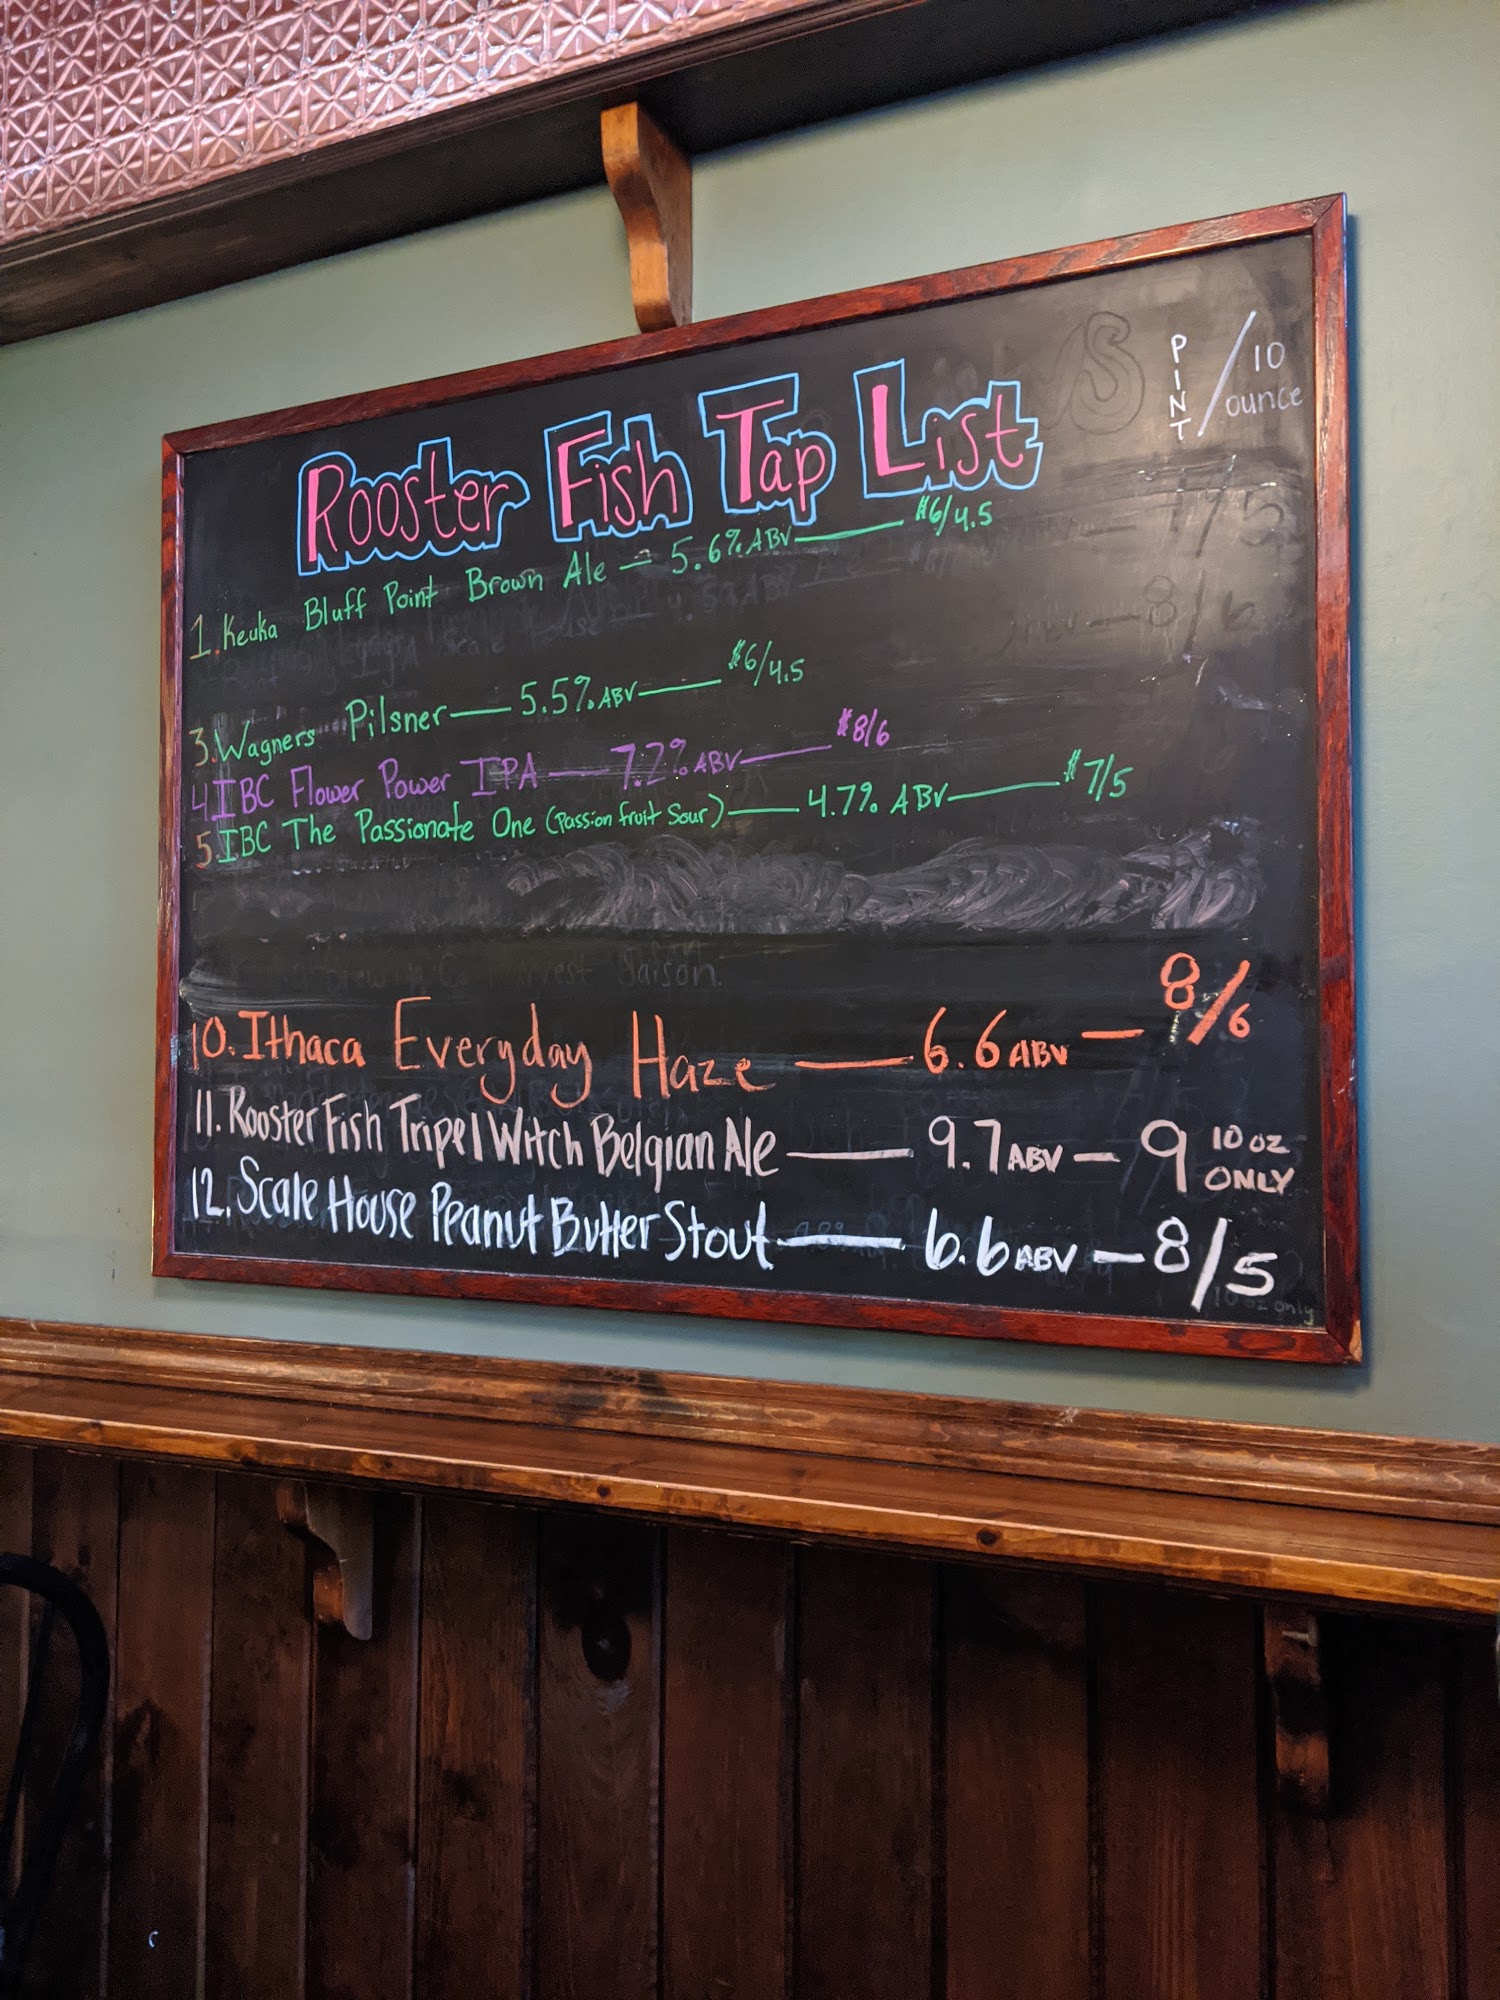 PINT / 10 ounce
Rooster Fish Tap List
1. Keuka Bluff Point Brown Ale — 5.6% ABV — $6/4.5
3. Wagners Pilsner — 5.5% ABV — $6/4.5
4 IBC Flower Power IPA — 7.2% ABV — $8/6
5. IBC The Passionate One (Passion fruit Sour) — 4.7% ABV — $7/5
10. Ithaca Everyday Haze — 6.6 ABV — 8/6
11. Rooster Fish Tripel Witch Belgian Ale — 9.7 ABV — 9 10 oz ONLY
12. Scale House Peanut Butter Stout — 6.6 ABV — 8/5